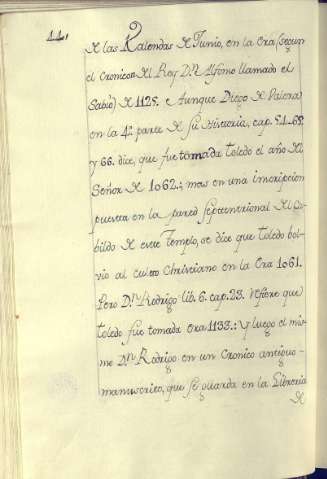 44.
de las Kalendas de Junio, en la Era (segun
el Cronicon del Rey Dn. Alfonso llamado el
Sabio) de 1125. Aunque Diego de Valera
en la 4a. parte de su Historia, cap. 54. 65.
y 66. dice, que fue tomada Toledo el año del
Señor de 1062.; mas en una inscripcion
puesta en la pared septentrional del
de este Templo, se dice que Toledo bol-
vio al culto Christiano en la Era 1061.
Pero Dn. Rodrigo lib. 6. cap. 23. refiere que
Toledo fue tomada Era 1133.: Y luego el mis-
mo Dn. Rodrigo en un Cronico antiguo-
manuscrito, que se guarda en la Libreria
de